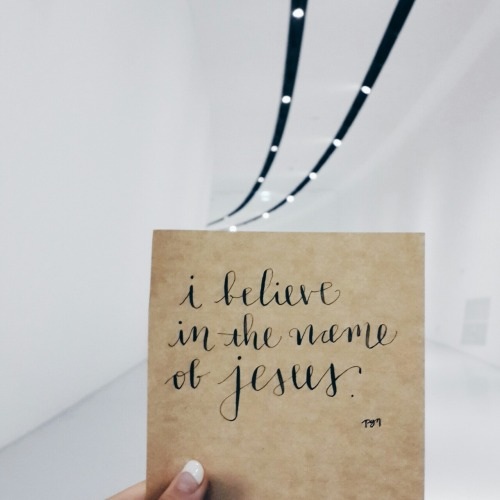 i believe
in the name
of jesus.